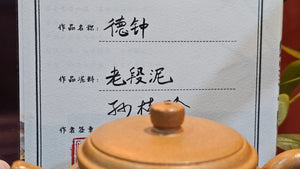 作品名识：德钟
作品泥料：老段泥
作者签章